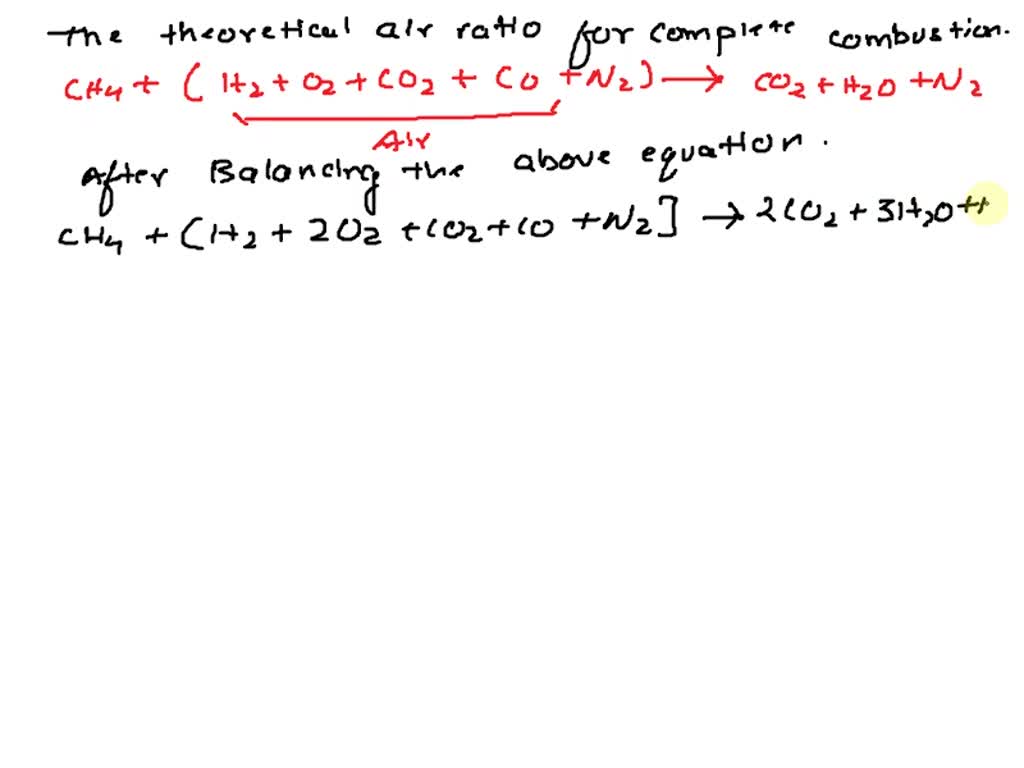 The theoretical air ratio for complete combustion.
CH4 + ( H2 + O2 + CO2 + CO + N2 ) → CO2 + H2O + N2
Air
After Balancing the above equation.
CH4 + [ H2 + 2O2 + CO2 + CO + N2 ] → 2CO2 + 3H2O +